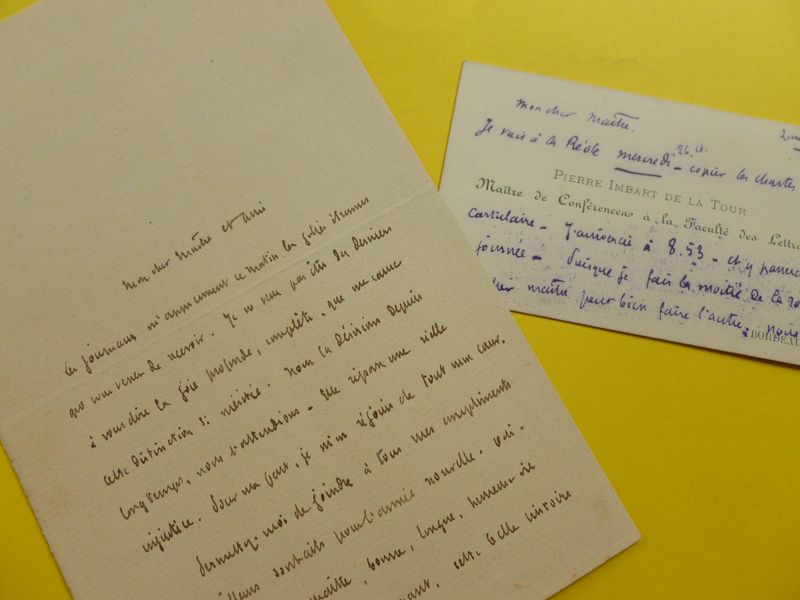 Mon cher Maître et ami
Les journaux m'apprennent ce matin les jolies étrennes
que vous venez de recevoir. Je ne veux pas être des derniers
à vous dire la joie profonde, complète, que me cause
cette distinction si méritée. Nous la désirions depuis
longtemps, nous l'attendions - Elle répare une vieille
injustice. Pour ma part, je m'en réjouis de tout mon cœur.
Permettez-moi de joindre à tous mes compliments
souhaits pour l'année nouvelle.
bonne, longue, heureuse vie
cette belle histoire
Mon cher Maître.
Je vais à la Réole mercredi 26 ct. copier les chartes
PIERRE IMBART DE LA TOUR
Maître de Conférences à la Faculté des Lettre
cartulaire - J'arriverai à 8.53 - et y passerai
journée - Puisque je fais la moitié de la ro
cher maître peut bien faire l'autre. nous
BORDEAU